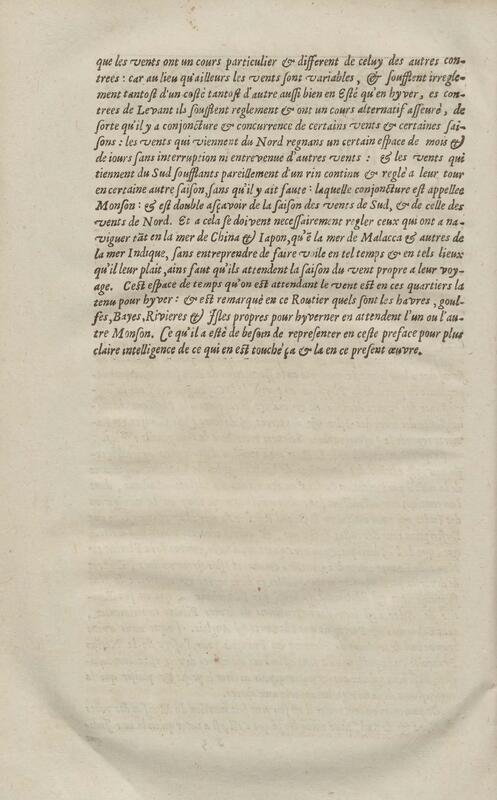 que les vents ont un cours particulier & different de celuy des autres con-
trees : car au lieu qu'ailleurs les vents sont variables, & soufflent irregle-
ment tantost d'un costé tantost d'autre aussi bien en Esté qu'en hyver, es con-
trees de Levant ils soufflent reglement & ont un cours alternatif asseuré, de
sorte qu'il y a conjoncture & concurrence de certains vents & certaines sai-
sons : les vents qui viennent du Nord regnans un certain espace de mois &
de iours sans interruption ni entrevenue d'autres vents : & les vents qui
tiennent du Sud soufflants pareillement d'un rin continu & reglé a leur tour
en certaine autre saison, sans qu'il y ait faute : laquelle conjoncture est appellee
Monson : & est double asçavoir de la saison des vents de Sud, & de celle des
vents de Nord. Et a cela se doivent necessairement regler ceux qui ont a na-
viguer tāt en la mer de China & Iapon, qu'ē la mer de Malacca & autres de
la mer Indique, sans entreprendre de faire voile en tel temps & en tels lieux
qu'il leur plait, ains faut qu'ils attendent la saison du vent propre a leur voy-
age. Cest espace de temps qu'on est attendant le vent est en ces quartiers la
tenu pour hyver : & est remarqué en ce Routier quels sont les havres, goul-
fes, Bayes, Rivieres & Isles propres pour hyverner en attendent l'un ou l'au-
tre Monson. Ce qu'il a esté de besoin de representer en ceste preface pour plus
claire intelligence de ce qui en est touché ça & la en ce present œuvre.